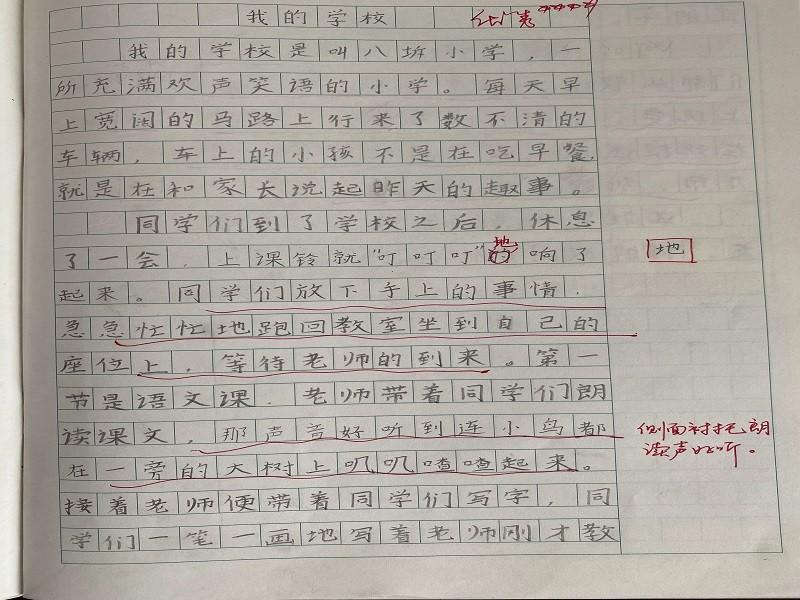 我的学校
我的学校是叫八圻小学，一
所充满欢声笑语的小学。每天早
上宽阔的马路上行来了数不清的
车辆，车上的小孩不是在吃早餐，
就是在和家长说起昨天的趣事。
同学们到了学校之后，休息
了一会，上课铃就“叮叮叮”的响了
地
地
起来。同学们放下手上的事情，
急急忙忙地跑回教室坐到自己的
座位上，等待老师的到来。第一
节是语文课，老师带着同学们朗
读课文，那声音好听到连小鸟都
侧面衬托朗
读声好听。
在一旁的大树上叽叽喳喳起来。
接着老师便带着同学们写字，同
学们一笔一画地写着老师刚才教